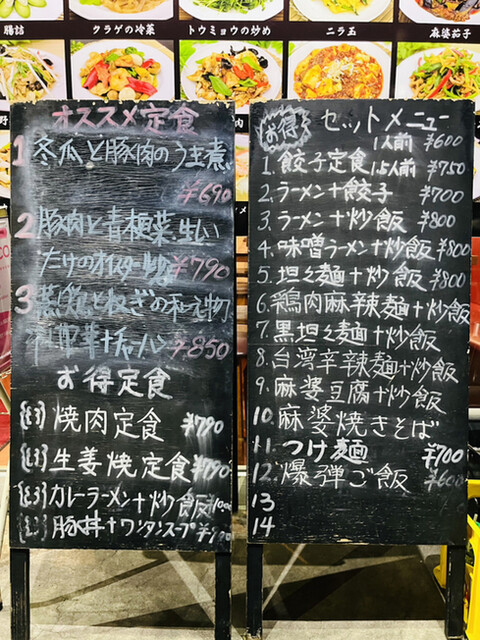 腸詰
クラゲの冷菜
トウミョウの炒め
ニラ玉
麻婆茄子
オススメ定食
1 冬瓜と豚肉のうま煮
¥690
2 豚肉と青梗菜生しい
たけのオイスター炒め ¥790
3 蒸鶏とねぎの和え物
チャーハン ¥850
お得定食
焼肉定食 ¥790
生姜焼定食 ¥790
カレーラーメン+炒飯
豚丼+ワンタンスープ
お得 セットメニュー
1人前 ¥600
1. 餃子定食 1.5人前 ¥750
2. ラーメン+餃子 ¥700
3. ラーメン+炒飯 ¥800
4. 味噌ラーメン+炒飯 ¥800
5. 坦々麺+炒飯 ¥800
6. 鶏肉麻辣麺+炒飯
7. 黒坦々麺+炒飯
8. 台湾辛辣麺+炒飯
9. 麻婆豆腐+炒飯
10. 麻婆焼きそば
11. つけ麺 ¥700
12. 爆弾ご飯 ¥600
13
14